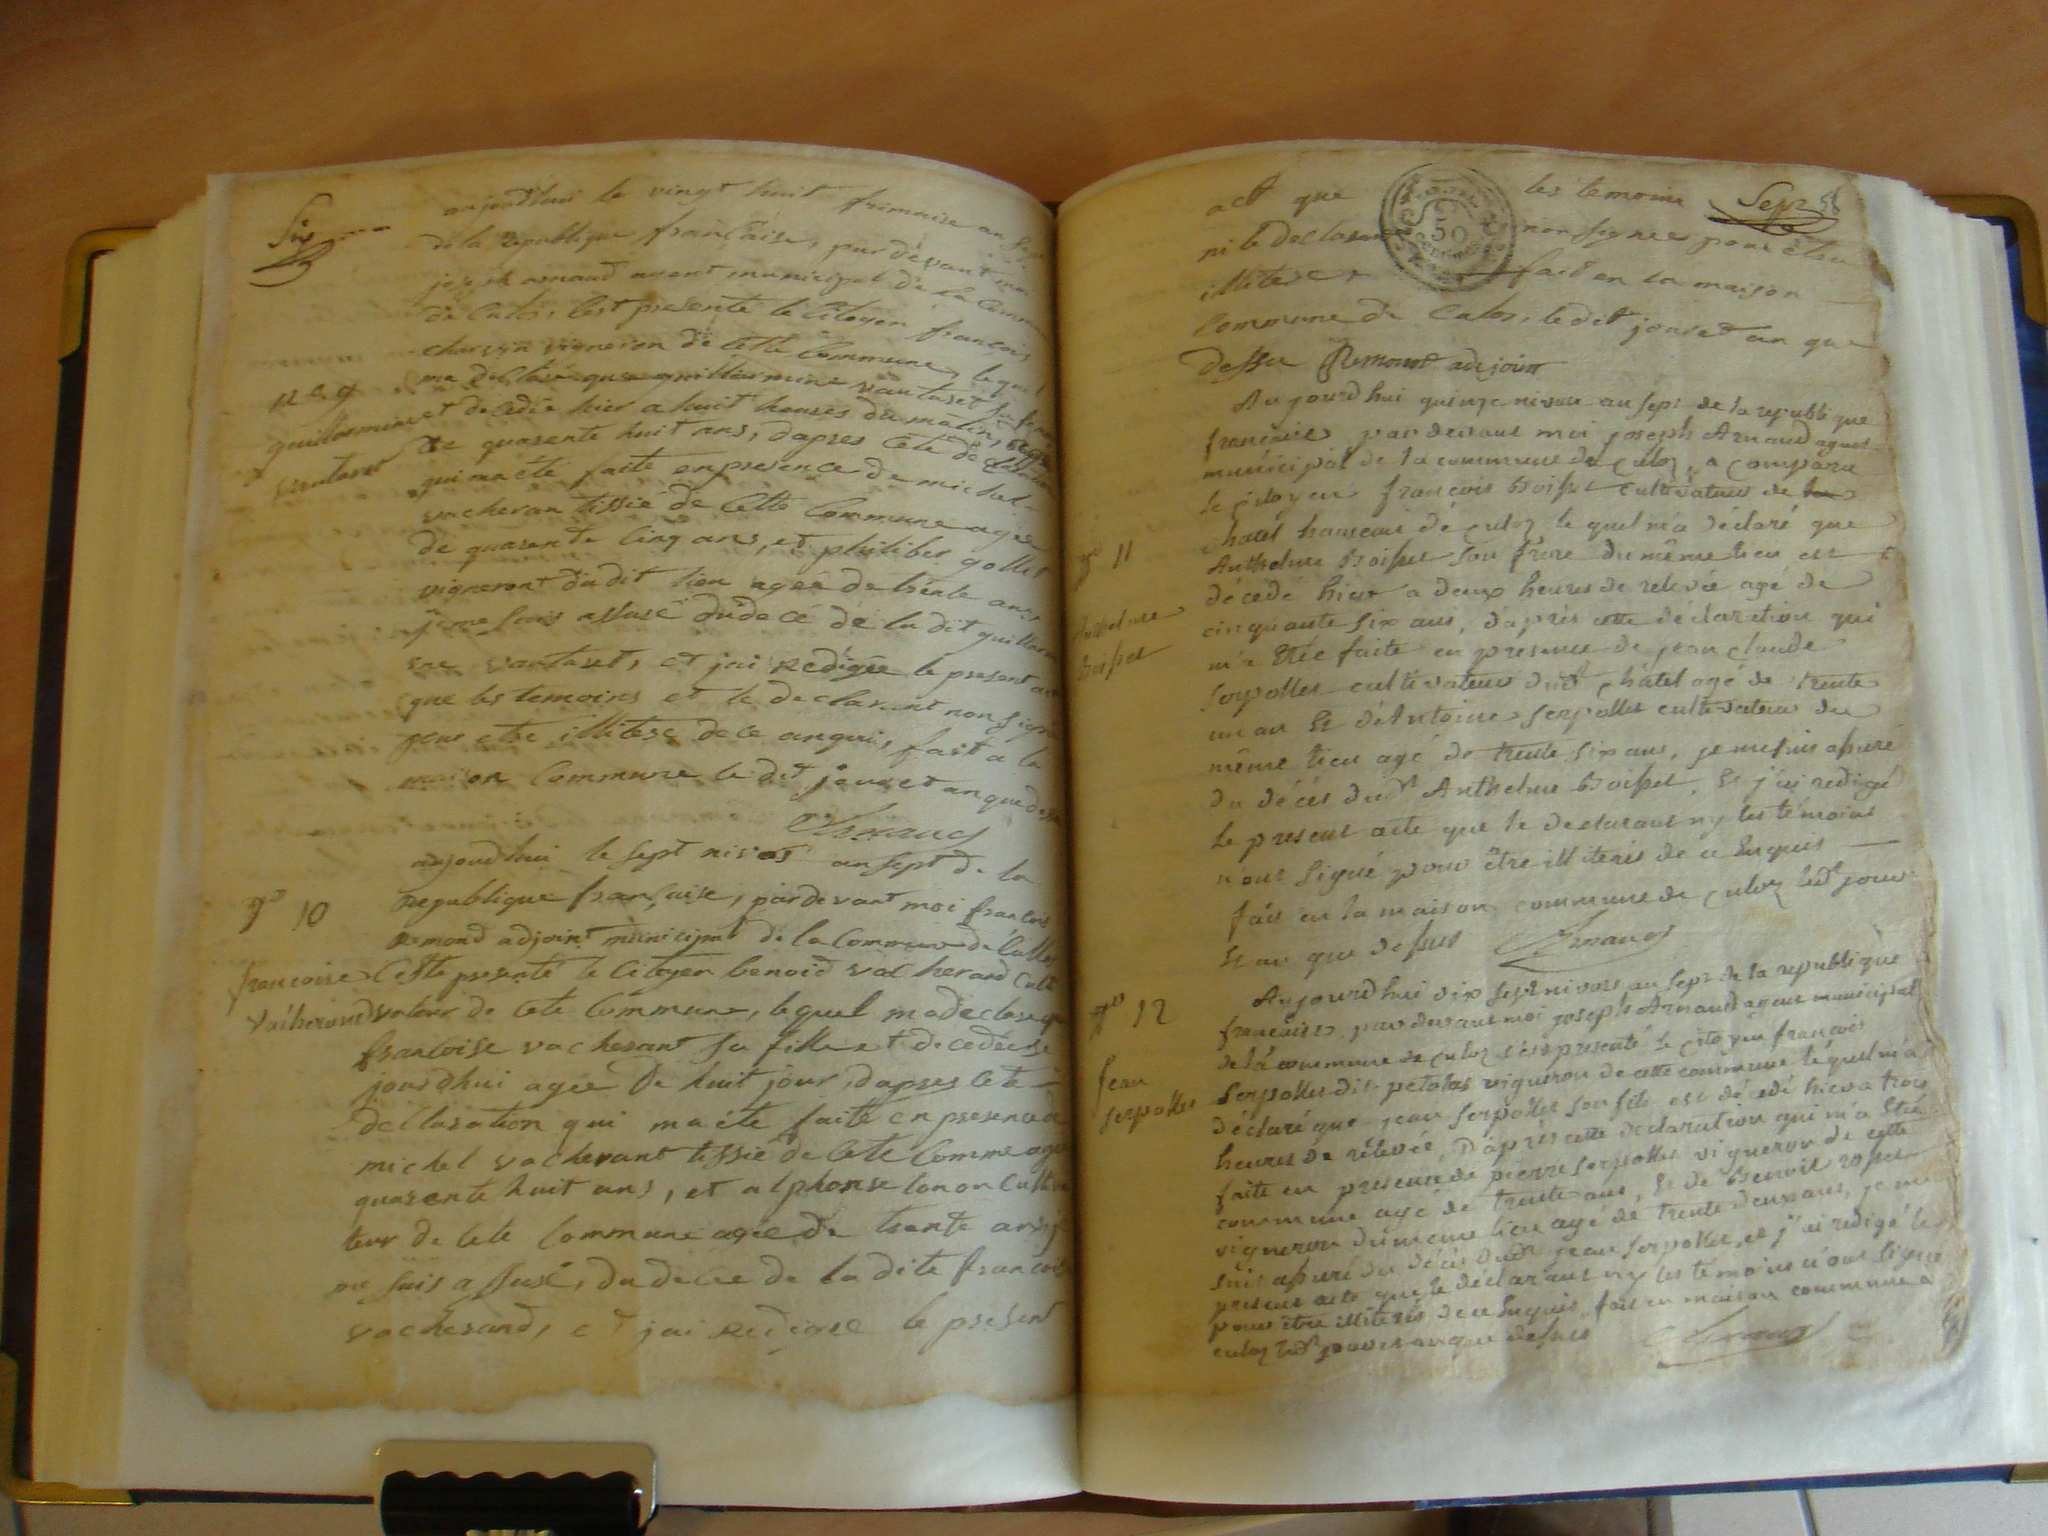 Six
aujourdhui le vingt huit frimaire an Sept
de la republique française, par devant moi
joseph arnaud agent municipal de la Commune
de Culos, cest presenté le Citoyen françois
vigneron de Cette Commune, lequel
ma déclaré que guillermine vautaret sa femme
et decedée hier a huit heures du matin, agée
de quarente huit ans, dapres cete declaration
qui ma été faite en presence de michel
vacheran tissié de Cette Commune agée
de quarente Cinq ans, et philiber gollet
vigneront du dit lieu agée de trente ans
je me suis assuré du decé de la dit guillermine
vautaret, et jai redigée le present act
que les temoins et le declarant non signé
pour etre illiteré de ce anquis, fait a la
maison Commune le dit jour et an que dessus
Arnaud
N° 9
guillermine
vautaret
aujourdhui le sept nivos an sept de la
republique française, pardevant moi francois
remond adjoint municipal de la Commune de Culos
Cest presenté le Citoyen benoid vacherand Culti
vateur de Cete Commune, lequel ma declare que
francoise vacherant sa fille et decedée ce
jourdhui agée De huit jour, dapres Cete
declaration qui ma été faite en presence de
michel vacherant tissié de Cete Comme agée
quarente huit ans, et alphonse Cultiva
teur de Cete Commune agée de trente ans, je
me suis assuré, du decée de la dite francoise
vacherand, et jai redigée le present
N° 10
francoise
vacherand
act que les temoins Sept 58
ni le declarant non signer pour etre
illiteré fait en la maison
Commune de Culos, le dit jour et an que
dessu Remond adejoint
50
Aujourd'hui quinze nivose an sept de la republique
française par devant moi joseph Arnaud agent
municipal de la commune de Culoz, a comparu
le citoyen françois Boisset cultivateur de
chatel hameau de Culoz le quel m'a déclaré que
Anthelme Boisset son frère du même lieu est
décédé hier a deux heures de relevée agé de
cinquante six ans, d'après cette déclaration qui
m'a Etée faite en presence de jean claude
serpollet cultivateur dud.t châtel agé de trente
un an Et d'Antoine serpollet cultivateur du
même lieu agé de trente six ans, je me suis assuré
du décès dud.t Anthelme Boisset, Et j'ai redigé
le present acte que le declarant ny les témoins
n'ont signé pour être illiterés de ce Enquis
fait en la maison commune de Culoz led.t jour
Et an que dessus Arnaud
N° 11
Anthelme
Boisset
Aujourd'hui dix sept nivose an sept de la republique
française par devant moi joseph Arnaud agent municipal
de la commune de Culoz s'est presenté le citoyen françois
serpollet dit petolas vigneron de cette commune le quel m'a
déclaré que jean serpollet son fils est décédé hier a trois
heures de relevée, D'après cette declaration qui m'a Eté
faite en presence de pierre serpollet vigneron de cette
commune agé de trente ans, Et de Benoit
vigneron du même lieu agé de trente deux ans, je me
suis assuré du décès dud.t jean serpollet, et j'ai redigé le
present acte que le déclarant ny les temoins n'ont signé
pour être illiterés de ce Enquis, fait en maison commune a
culoz led.t jour et an que dessus Arnaud
N° 12
jean
serpollet